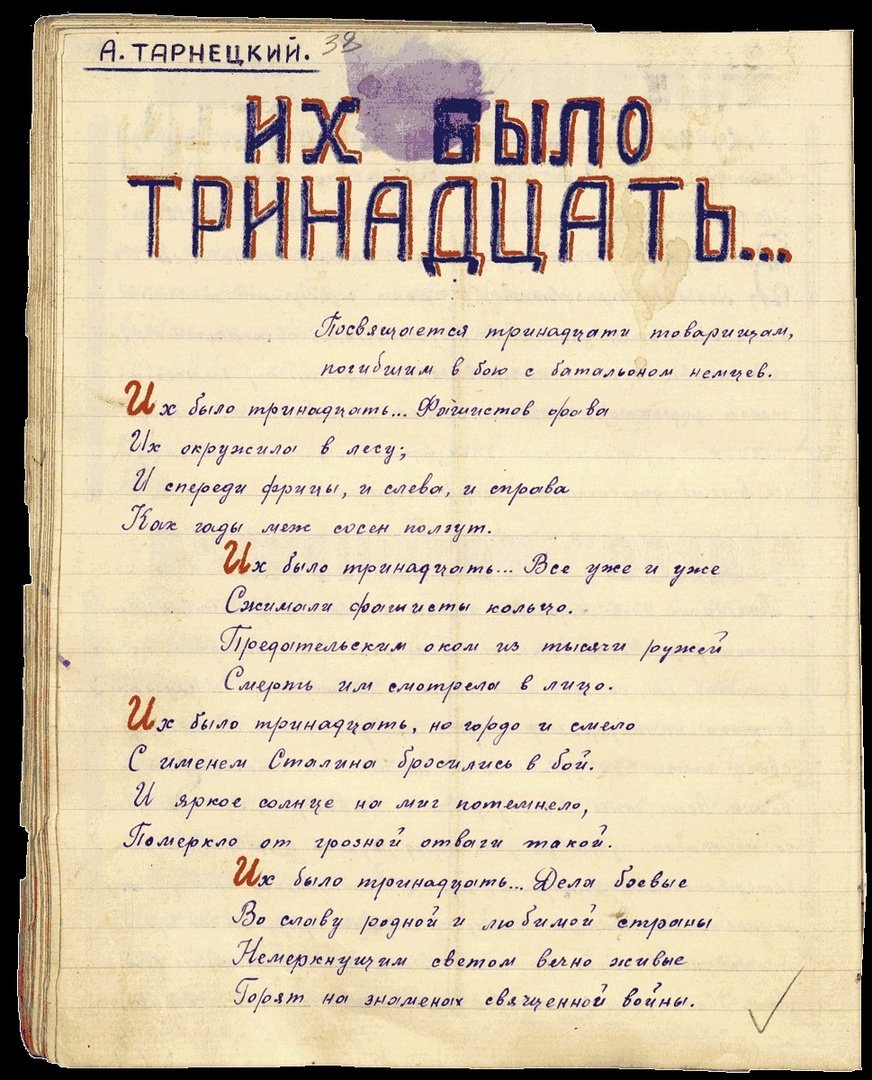 А. ТАРНЕЦКИЙ. 38
ИХ БЫЛО
ТРИНАДЦАТЬ...
Посвящается тринадцати товарищам,
погибшим в бою с батальоном немцев.
Их было тринадцать... Фашистов орава
Их окружила в лесу;
И спереди фрицы, и слева, и справа
Как гады меж сосен ползут.
Их было тринадцать... Все уже и уже
Сжимали фашисты кольцо.
Предательским оком из тысячи ружей
Смерть им смотрела в лицо.
Их было тринадцать, но гордо и смело
С именем Сталина бросились в бой.
И яркое солнце на миг потемнело,
Померкло от грозной отваги такой.
Их было тринадцать... Дела боевые
Во славу родной и любимой страны
Немеркнущим светом вечно живые
Горят на знаменах священной войны.